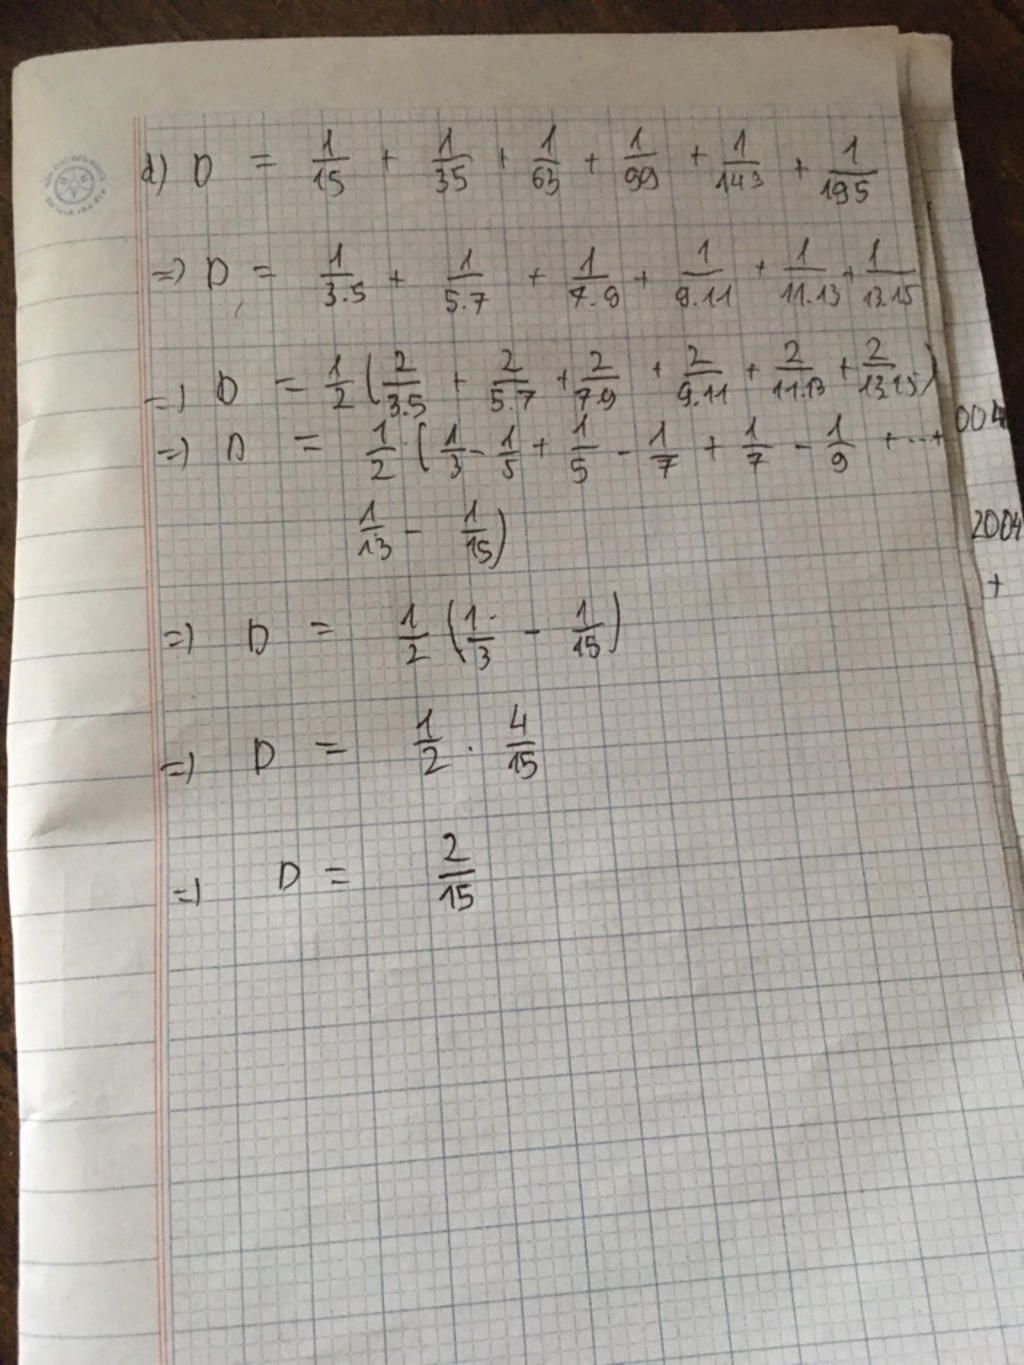 d) D = 1/15 + 1/35 + 1/63 + 1/99 + 1/143 + 1/195
=) D = 1/3.5 + 1/5.7 + 1/7.9 + 1/9.11 + 1/11.13 + 1/13.15
=) D = 1/2 (2/3.5 + 2/5.7 + 2/7.9 + 2/9.11 + 2/11.13 + 2/13.15)
=) D = 1/2 . (1/3 - 1/5 + 1/5 - 1/7 + 1/7 - 1/9 + ... +
1/13 - 1/15)
=) D = 1/2 (1/3 - 1/15)
=) D = 1/2 . 4/15
=) D = 2/15
004
2004
+